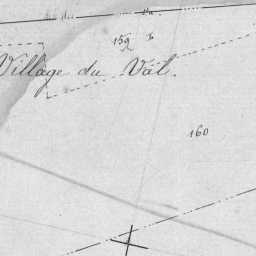 159 b
Village du Val.
160